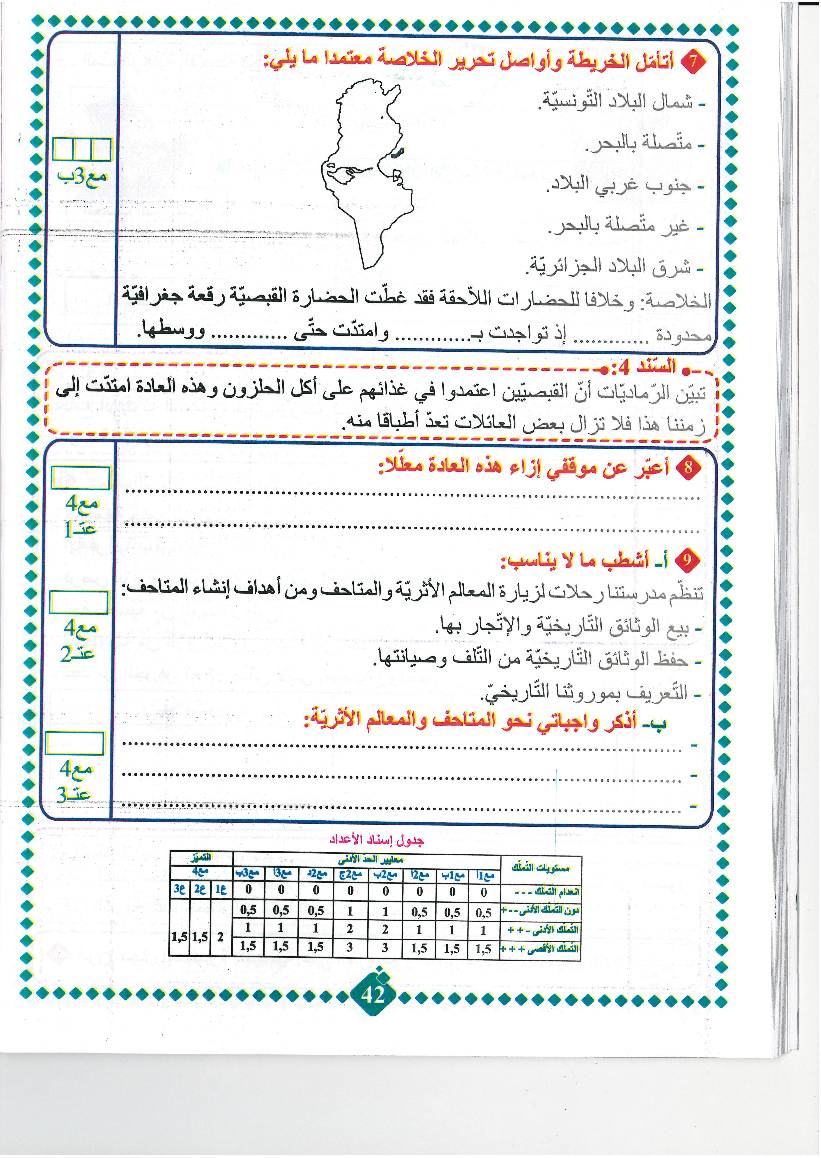 7 أتأمّل الخريطة وأواصل تحرير الخلاصة معتمدا ما يلي:
- شمال البلاد التّونسيّة.
- متّصلة بالبحر.
مع3ب
- جنوب غربي البلاد.
- غير متّصلة بالبحر.
- شرق البلاد الجزائريّة.
الخلاصة: وخلافا للحضارات اللاّحقة فقد غطّت الحضارة القبصيّة رقعة جغرافيّة
محدودة ............. إذ تواجدت بـ............. وامتدّت حتّى ............. ووسطها.
السّند 4:
تبيّن الرّماديّات أنّ القبصيّين اعتمدوا في غذائهم على أكل الحلزون وهذه العادة امتدّت إلى
زمننا هذا فلا تزال بعض العائلات تعدّ أطباقا منه.
8 أعبّر عن موقفي إزاء هذه العادة معلّلا:
مع4
عـ1
9 أ- أشطب ما لا يناسب:
تنظّم مدرستنا رحلات لزيارة المعالم الأثريّة والمتاحف ومن أهداف إنشاء المتاحف:
- بيع الوثائق التّاريخيّة والإتّجار بها.
مع4
عـ2
- حفظ الوثائق التّاريخيّة من التّلف وصيانتها.
- التّعريف بموروثنا التّاريخيّ.
ب- أذكر واجباتي نحو المتاحف والمعالم الأثريّة:
- 
- 
- 
مع4
عـ3
جدول إسناد الأعداد
مستويات التملّك معايير الحدّ الأدنى التميّز
مع1أ مع1ب مع2أ مع2ب مع2ج مع2د مع3أ مع3ب مع4
انعدام التملّك - - - 0 0 0 0 0 0 0 0 ع1 ع2 ع3
دون التملّك الأدنى - - + 0,5 0,5 0,5 1 1 0,5 0,5 0,5
التملّك الأدنى - + + 1 1 1 2 2 1 1 1 2 1,5 1,5
التملّك الأقصى + + + 1,5 1,5 1,5 3 3 1,5 1,5 1,5
42